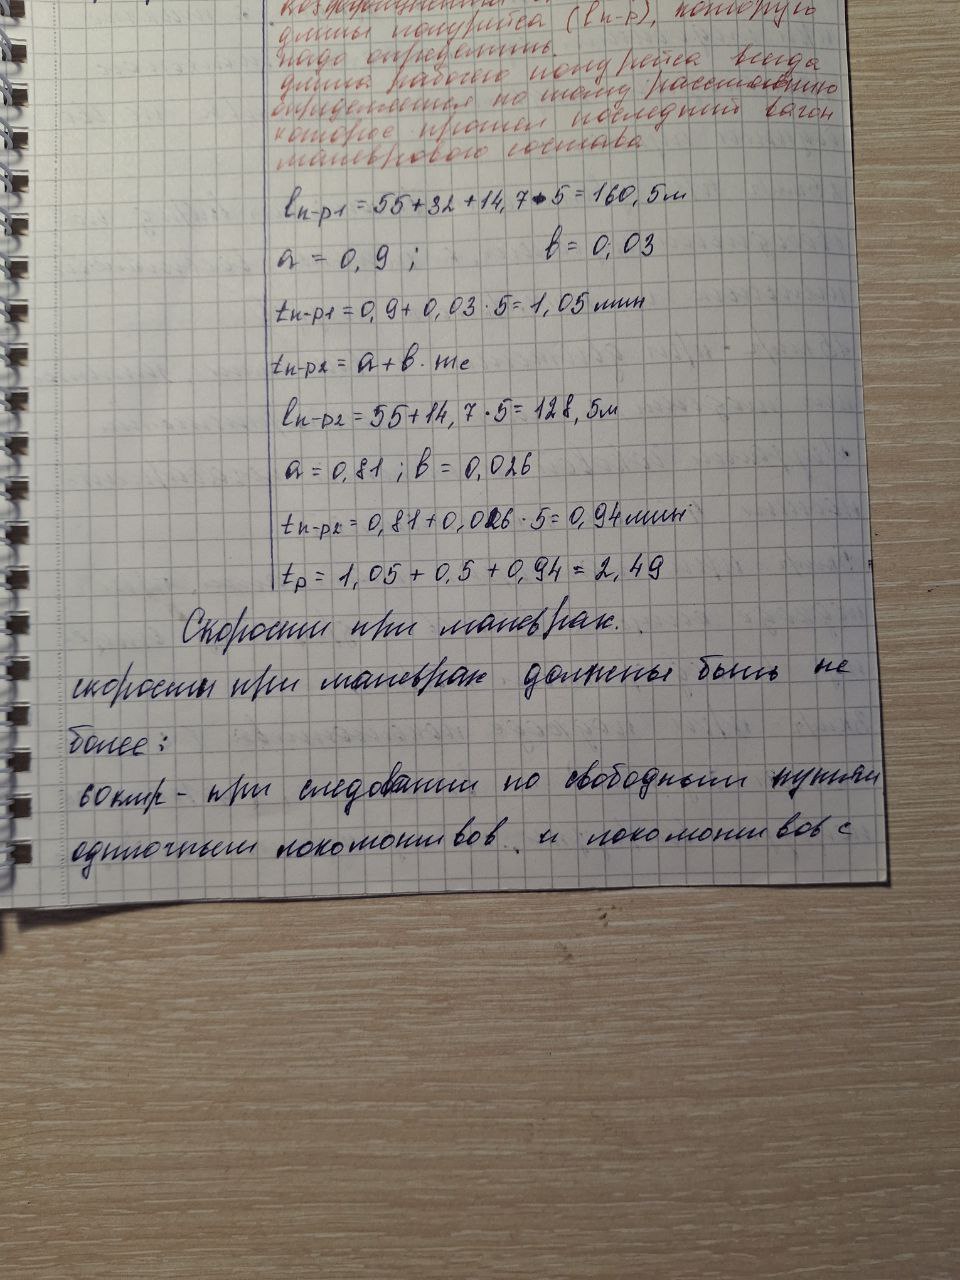 длины полурейса (lп-р), которую
надо определить
длина рабочего полурейса всегда
определяется по тому расстоянию
которое прошел последний вагон
маневрового состава
lп-р1 = 55+32+14,7·5=160,5м
a = 0,9 ; в = 0,03
tп-р1 = 0,9+0,03·5=1,05мин
tп-р2 = a+в·mc
lп-р2 = 55+14,7·5=128,5м
a = 0,81 ; в = 0,026
tп-р2 = 0,81+0,026·5=0,94мин
tр = 1,05+0,5+0,94=2,49
Скорости при маневрах.
скорости при маневрах должны быть не
более:
60км/ч - при следовании по свободным путям
одиночных локомотивов и локомотивов с